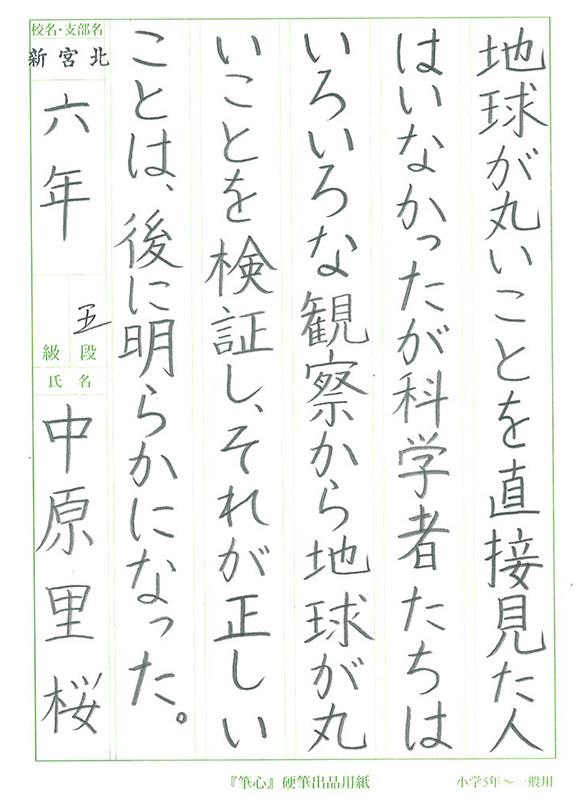 地球が丸いことを直接見た人
はいなかったが科学者たちは
いろいろな観察から地球が丸
いことを検証し、それが正しい
ことは、後に明らかになった。
校名・支部名
新宮北
六年
五
級 段
氏名
中原里桜
『筆心』硬筆出品用紙
小学5年～一般用